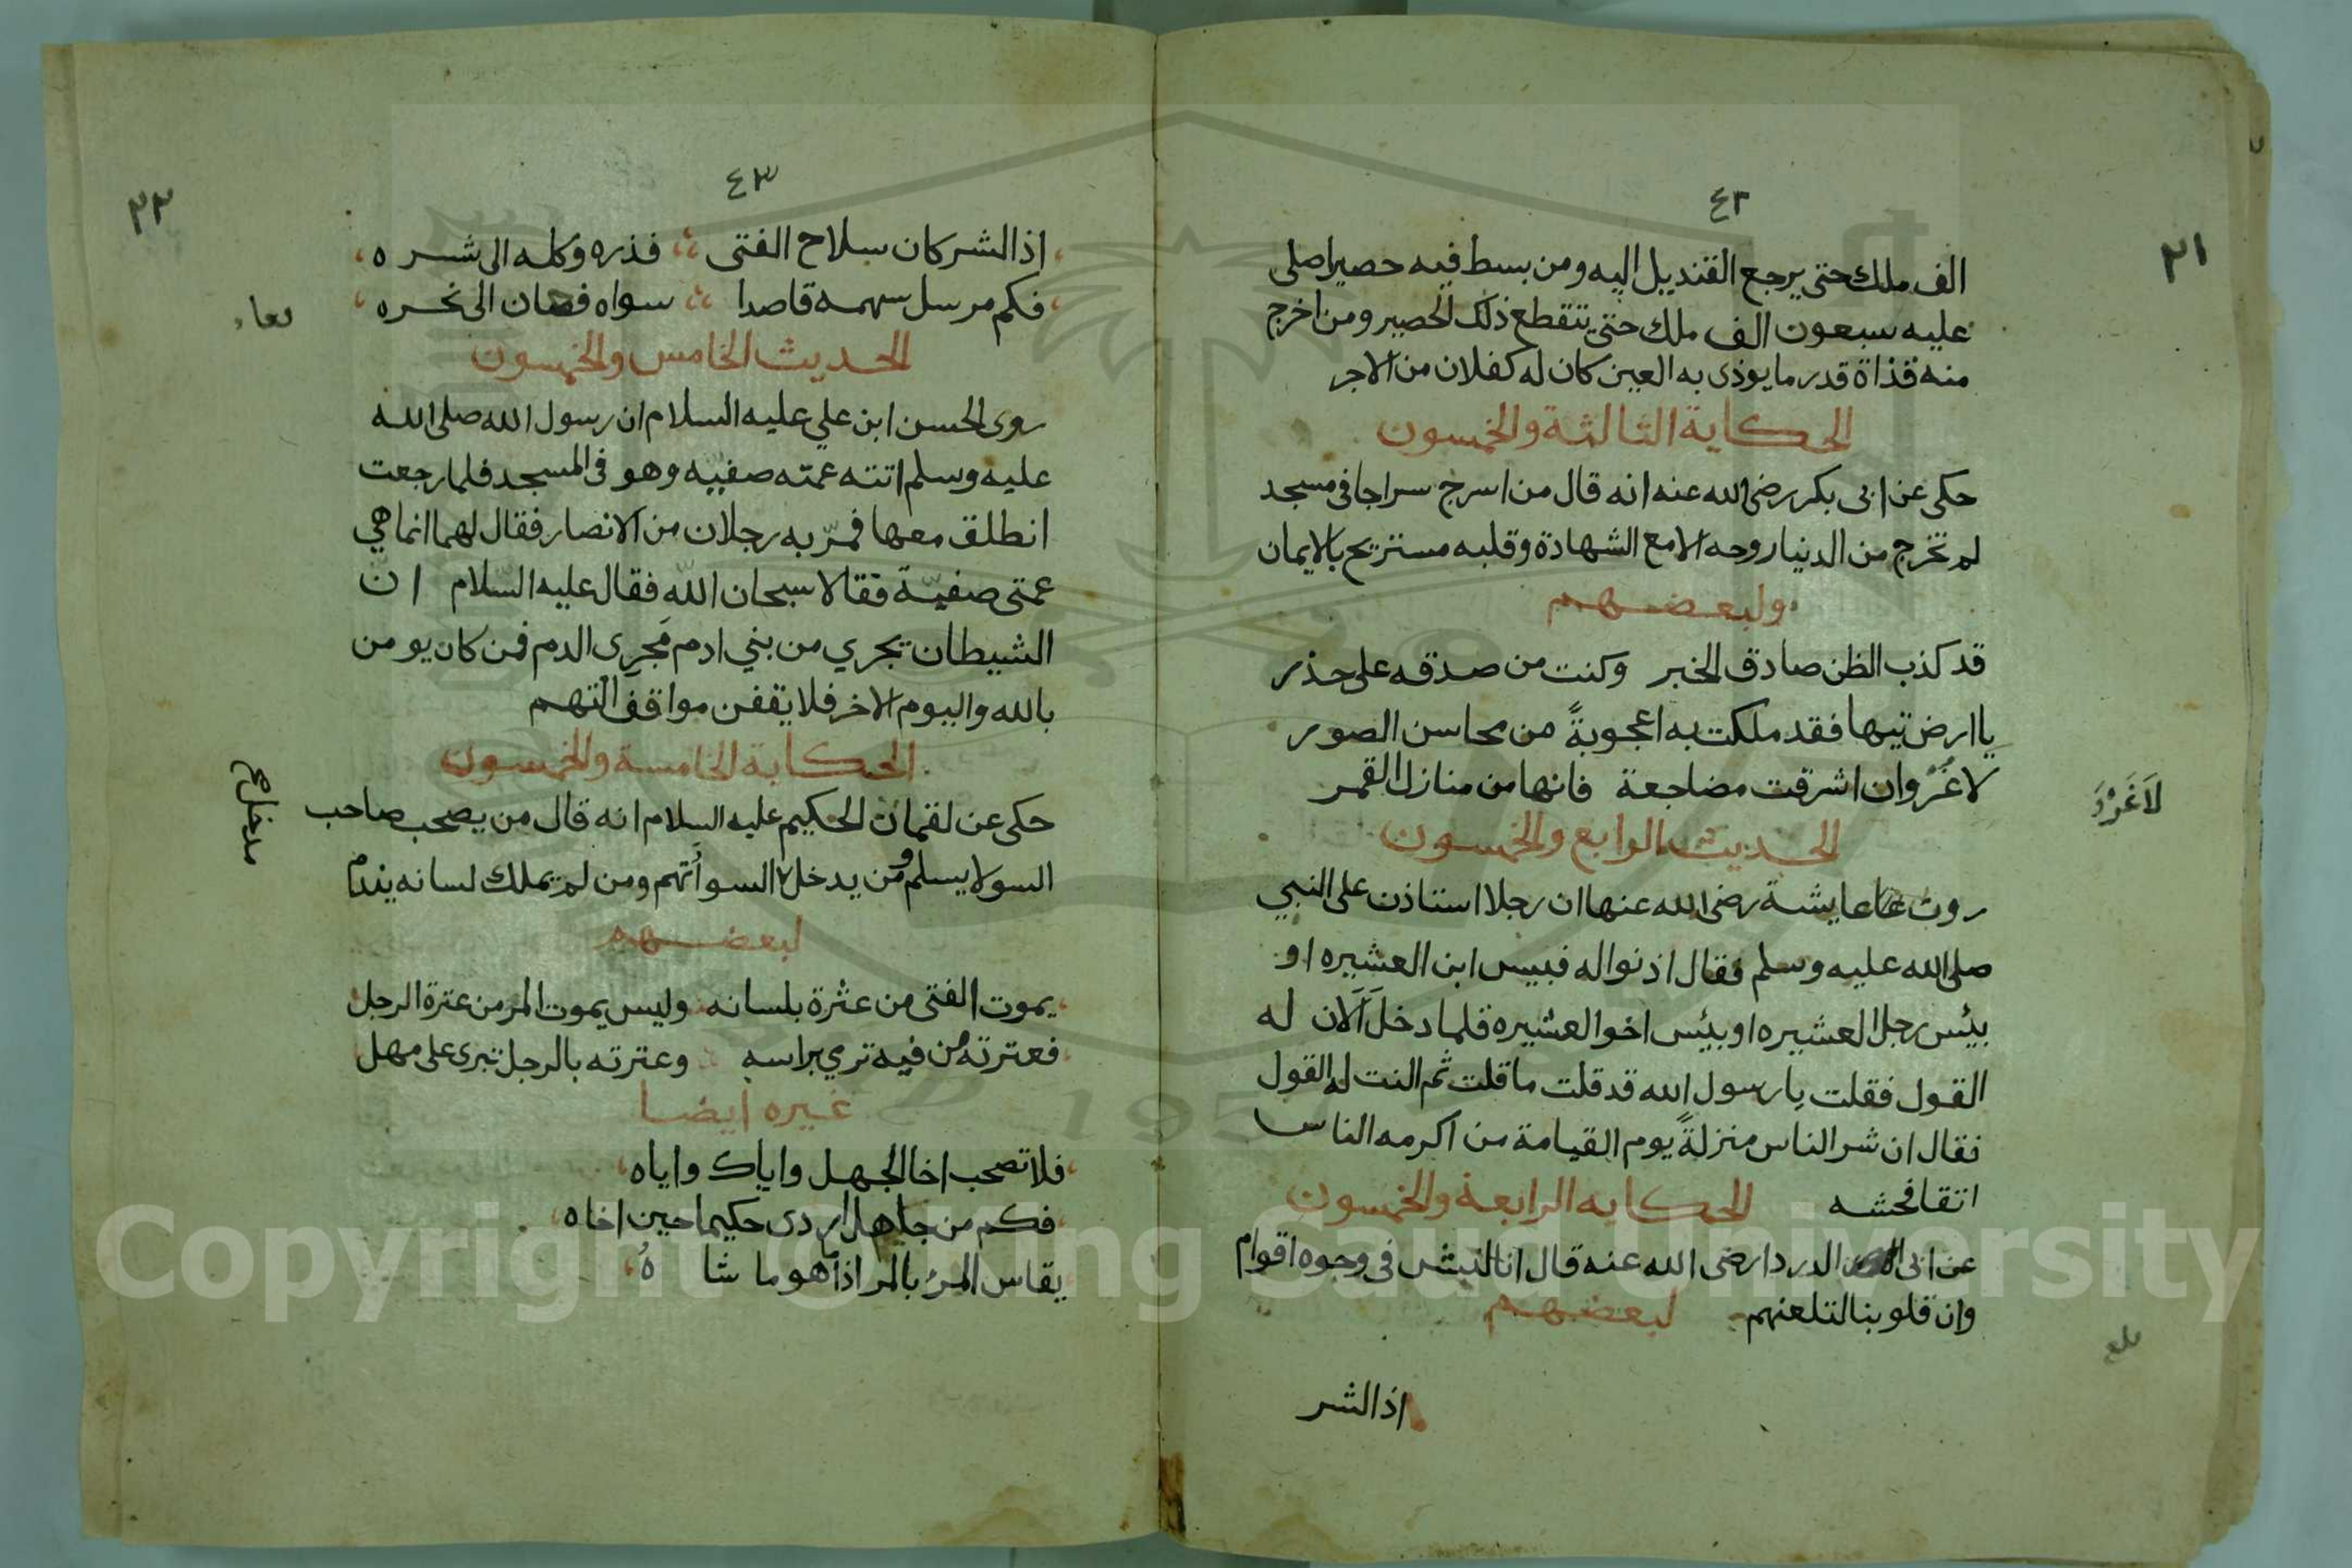 ٤٢
٢١
الف ملك حتى يرجع القنديل اليه ومن بسط فيه حصيرا صلى
عليه سبعون الف ملك حتى تتقطع ذلك الحصير ومن اخرج
منه قذاة قدر ما يوذى به العين كان له كفلان من الاجر
الحكاية الثالثة والخمسون
حكى عن ابى بكر رضى الله عنه انه قال من اسرج سراجا فى مسجد
لم تخرج من الدنيا روحه الا مع الشهادة وقلبه مستريح بالايمان
ولبعضهم
قد كذب الظن صادق الخبر وكنت من صدقه على حذر
يا ارض تيها فقد ملكت به اعجوبةً من محاسن الصور
لا غَرْوان اشرقت مضاجعة فانها من منازل القمر
لَا غَرْوَ
الحديث الرابع والخمسون
روت عايشة رضى الله عنها ان رجلا استاذن على النبي
صلى الله عليه وسلم فقال اذنوا له فبيس ابن العشيره او
بيئس رجل العشيره او بيئس اخو العشيره فلما دخل اَلَان له
القول فقلت يا رسول الله قد قلت ما قلت ثم النت له القول
فقال ان شر الناس منزلةً يوم القيامة من اكرمه الناس
اتقا فحشه الحكايه الرابعة والخمسون
عن ابى الدردا رضى الله عنه قال انا لنبش فى وجوه اقوام
وان قلوبنا لتلعنهم لبعضهم
بلغ
اذا الشر
٤٣
٢٢
اذا الشر كان سلاح الفتى فذره وكله الى شره
فكم مرسل سهمه قاصدا سواه فصان الى نحره
الحديث الخامس والخمسون
روى الحسن ابن علي عليه السلام ان رسول الله صلى الله
عليه وسلم اتته عمته صفيه وهو فى المسجد فلما رجعت
انطلق معها فمرّ به رجلان من الانصار فقال لهما انما هي
عمتى صفيّة فقالا سبحان اللّه فقال عليه السّلام انّ
الشيطان تجري من بني ادم مَجرِى الدم فمن كان يومن
بالله واليوم الاخر فلا يقفن مواقف التهم
الحكاية الخامسة والخمسون
حكى عن لقمان الحكيم عليه السلام انه قال من يصحب صاحب
السو لا يسلم ومن يدخل السوا تُهم ومن لم يملك لسانه يندم
مدخل صح
لبعضهم
يموت الفتى من عثرة بلسانه وليس يموت المر من عترة الرجل
فعترته من فيه ترمي براسه وعترته بالرجل تبرى على مهل
غيره ايضا
فلا تصحب اخا الجهل واياك واياه
فكم من جاهل اردى حكيما حين اخاه
يقاس المرُ بالمر اذا ما هو ما شاهُ
Copyright © King Saud University
1957